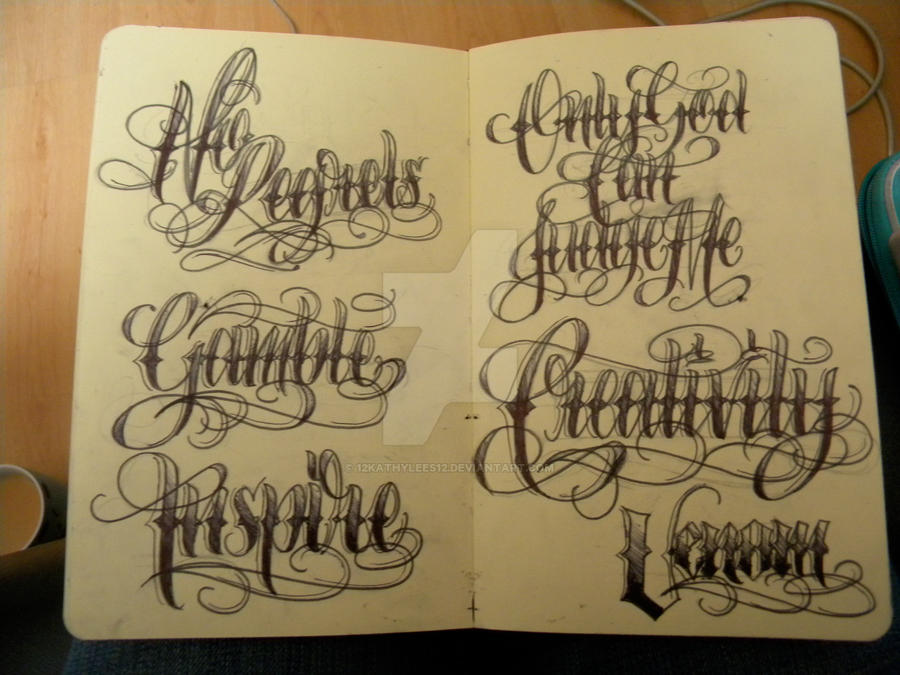 No
Regrets
Gamble
Inspire
Only God
Can
Judge Me
Creativity
Venom
© 12KATHYLEES12.DEVIANTART.COM